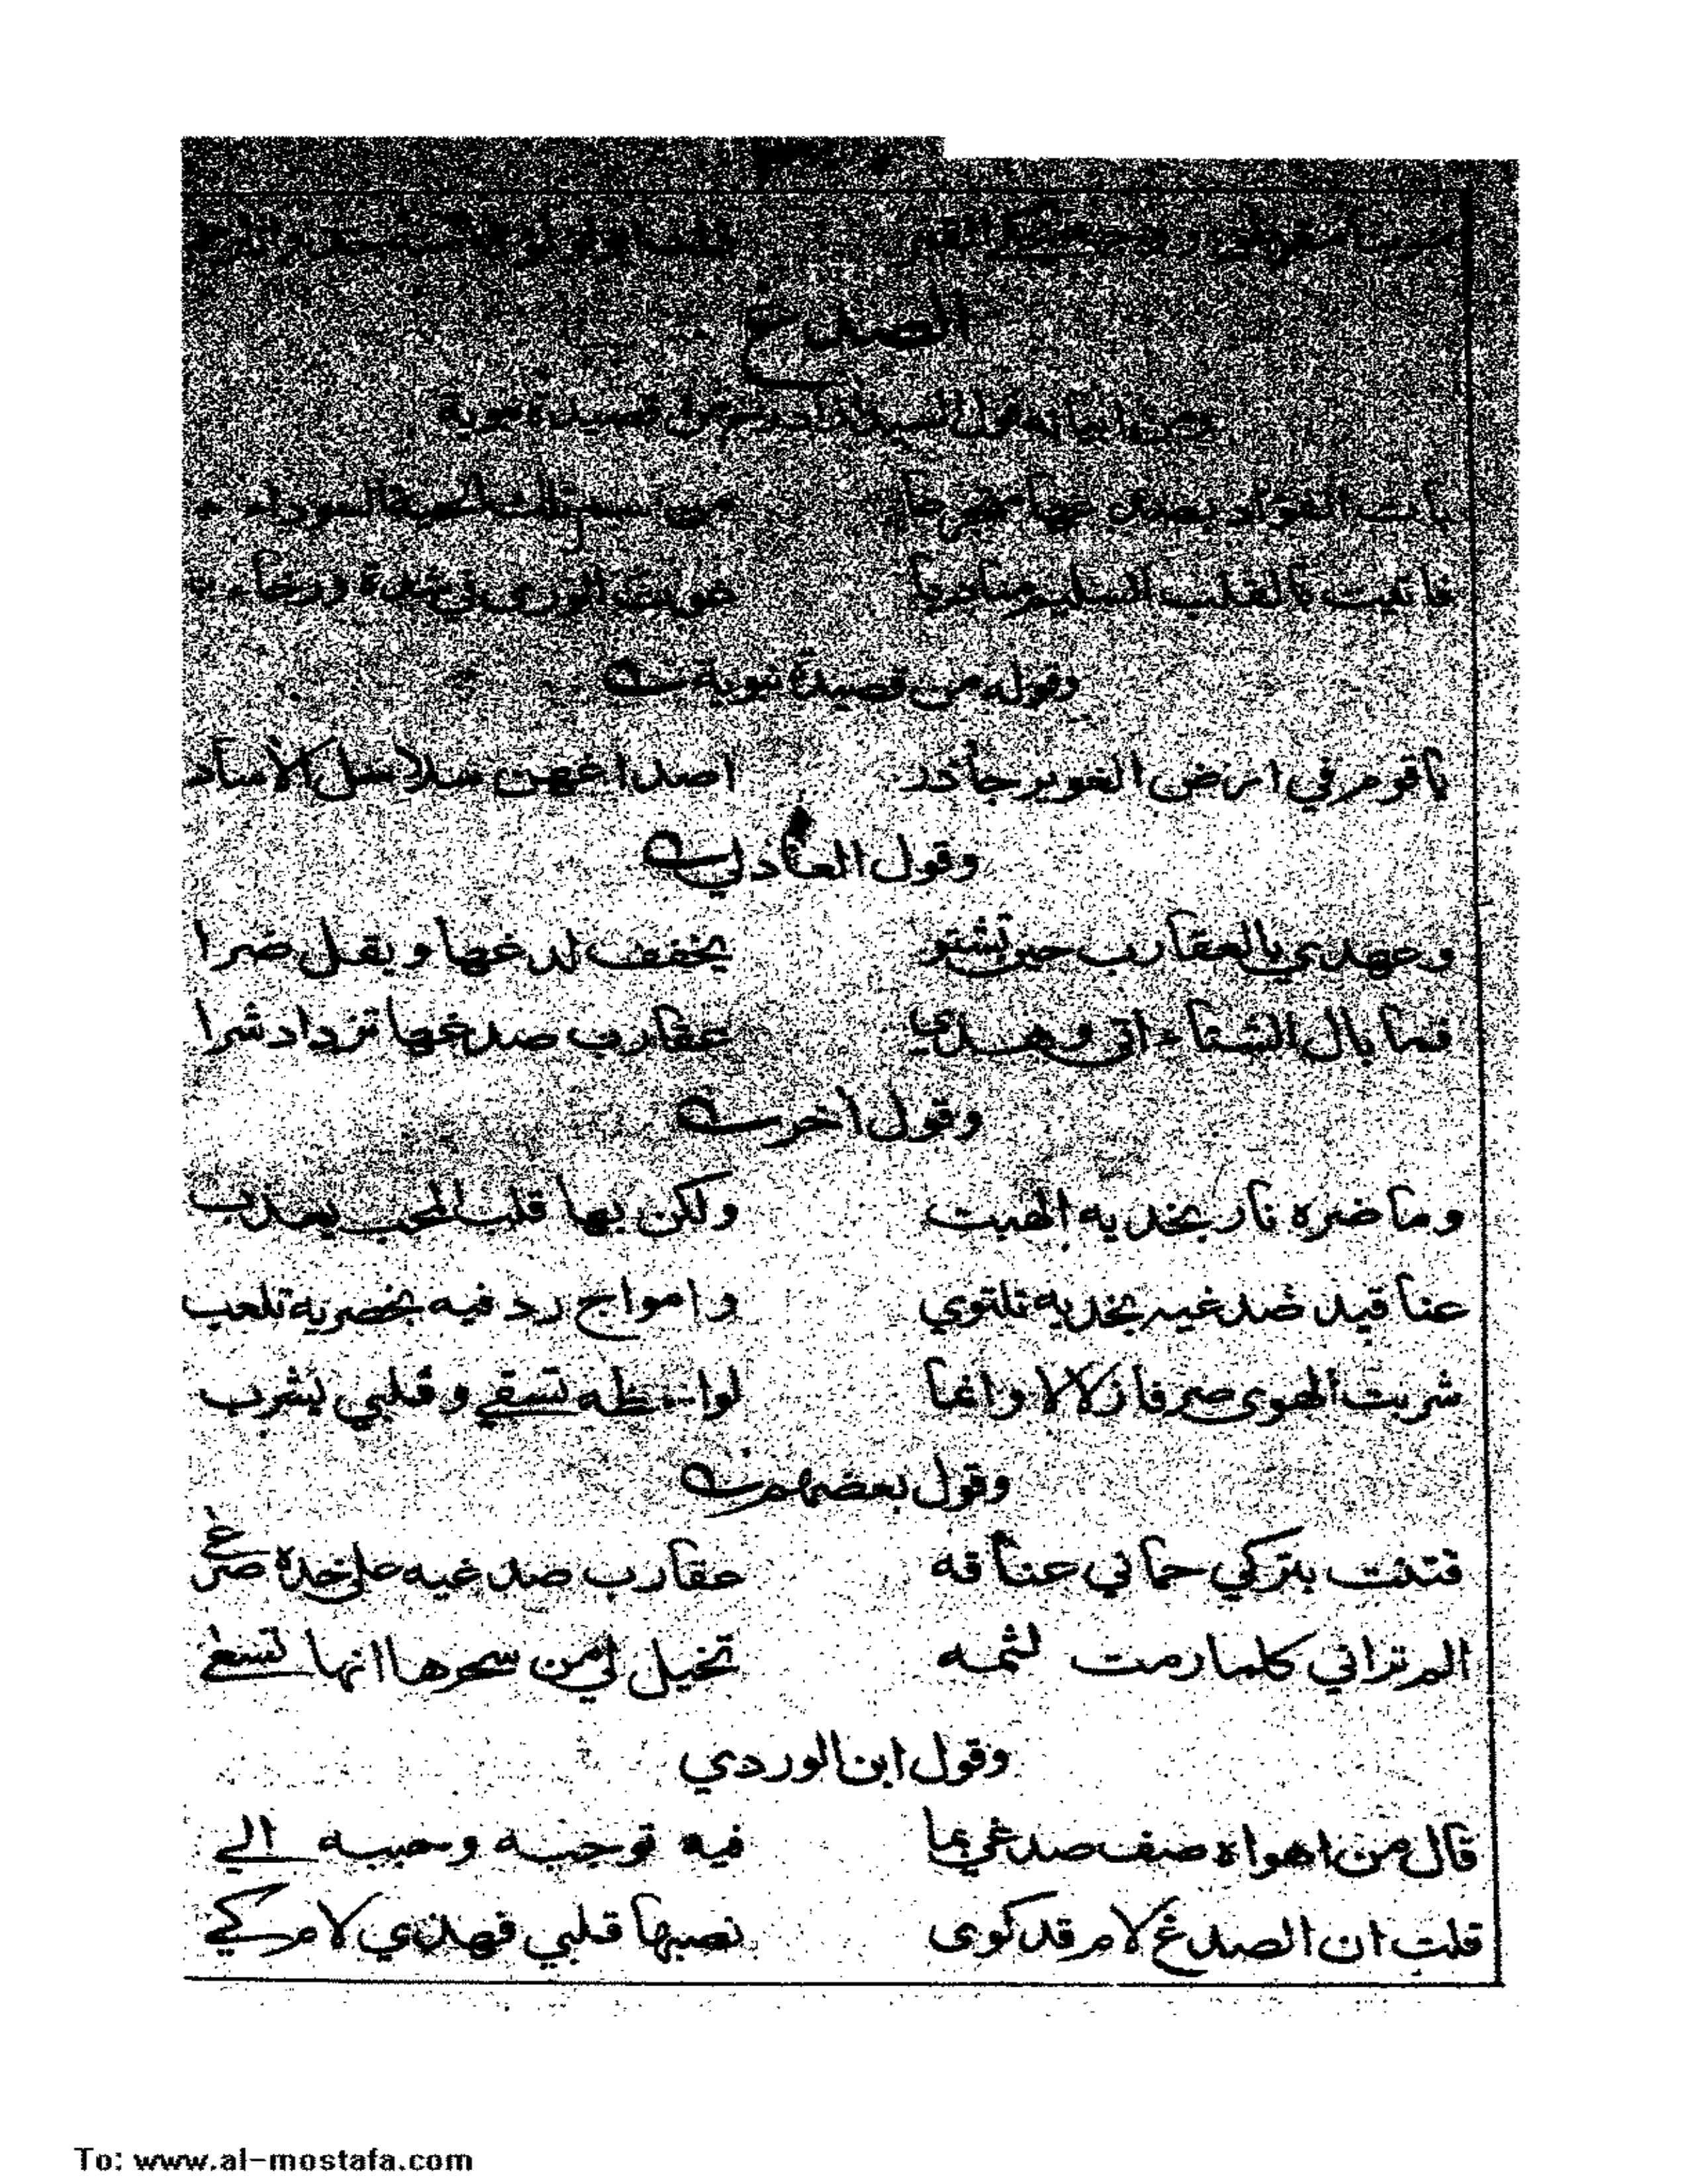 الصدغ
قول السيد قصيدة نبوية
بات الفؤاد بصدغها من تلك الحية السوداء
بالقلب السليم الورى في شدة ورخاء
وقوله من قصيدة نبوية
يا قوم في ارض الغوير جآذر اصداغهن سلاسل الآساد
وقول العادلي
وعهدي بالعقارب حين تشتو يخفف لدغها ويقل ضرا
فما بال الشتاء اتى وهذي عقارب صدغها تزداد شرا
وقول آخر
وما ضره نار بخديه الهبت ولكن بها قلب المحب يعذب
عناقيد ضدغيه بخديه تلتوي وامواج ردفيه بخصريه تلعب
شربت الهوى صرفا زلالا وانما لواحظه تسقي وقلبي يشرب
وقول بعضهم
فتنت بتركي حماني عناقه عقارب ضدغيه على خده صرعى
الم تراني كلما رمت لثمه تخيل لي من سحرها انها تسعى
وقول ابن الوردي
قال من اهواه صف صدغي بما فيه توجيه وحببه الي
قلت ان الصدغ لام قد كوى نصبها قلبي فهذي لام كي
To: www.al-mostafa.com